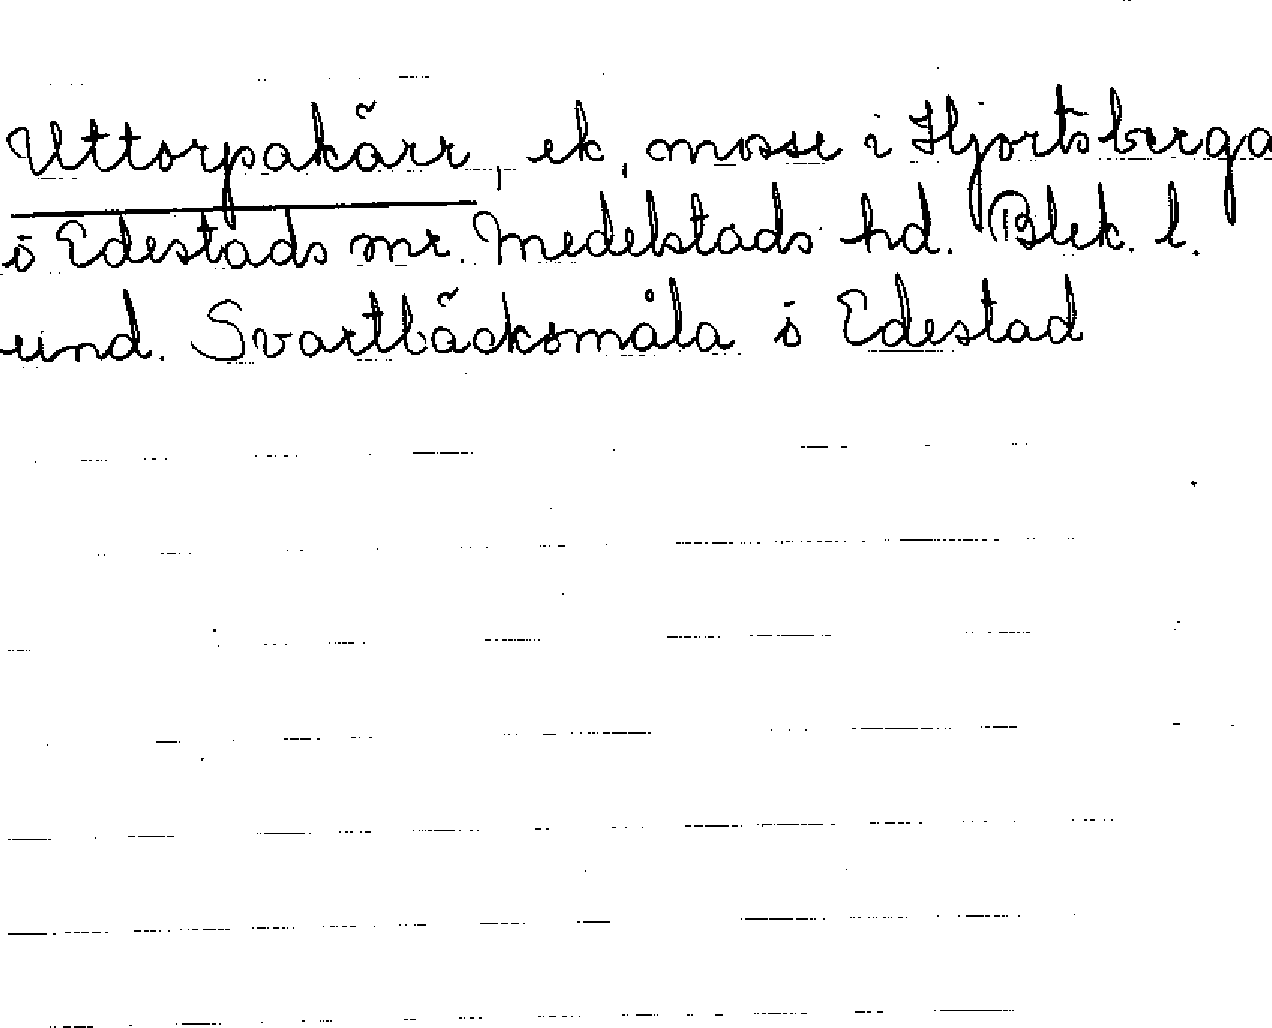 Uttorpakärr, ek, mosse i Hjortsberga
o Edestads mr. Medelstads hd. Blek. l.
und. Svartbäcksmåla o Edestad